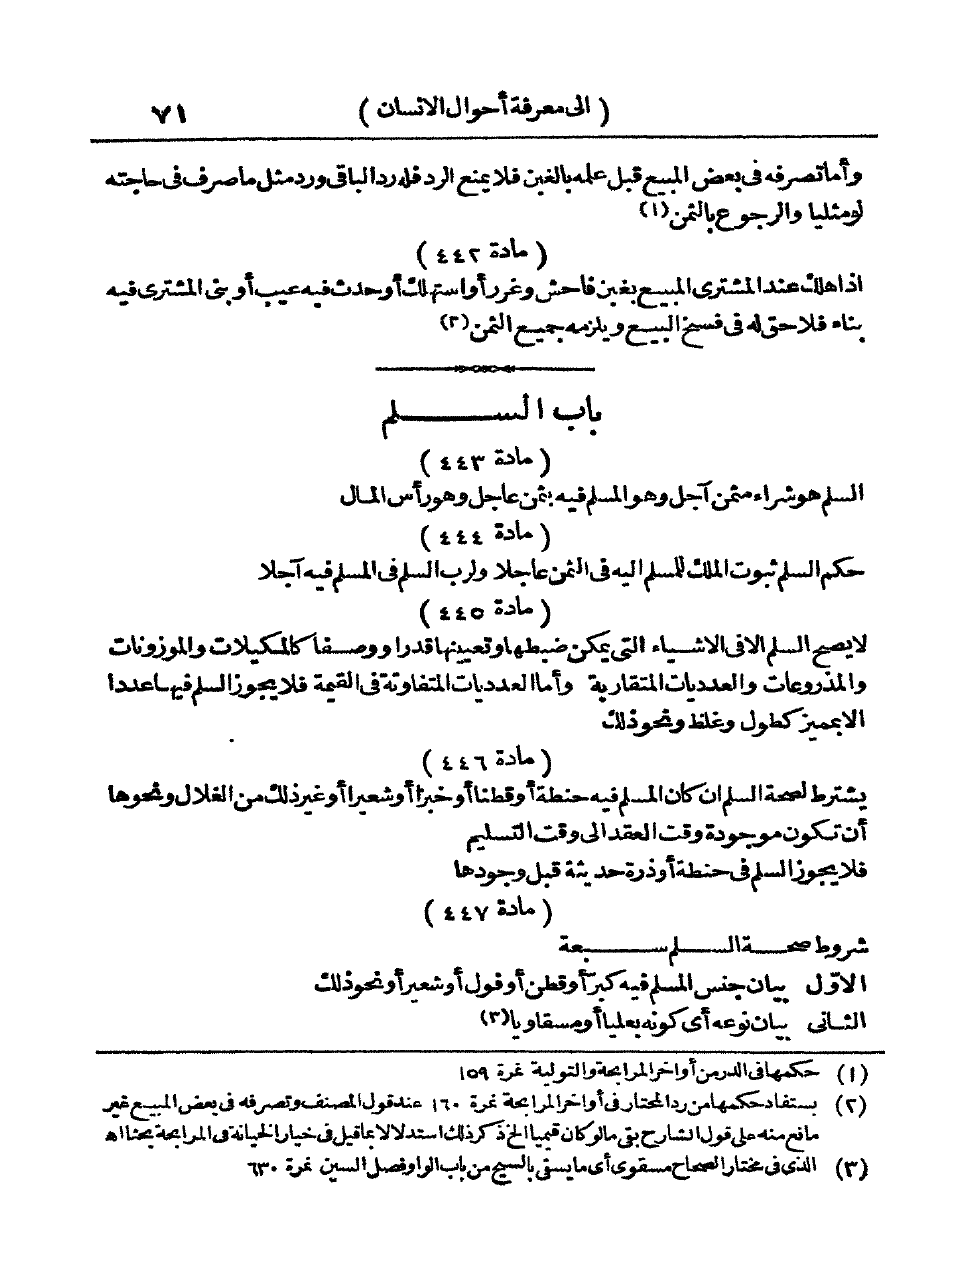 ( الى معرفة أحوال الانسان ) ٧١
وأما تصرفه فى بعض المبيع قبل علمه بالغبن فلا يمنع الرد فله رد الباقى ورد مثل ما صرف فى حاجته
لو مثليا والرجوع بالثمن (١)
( مادة ٤٤٢ )
اذا هلك عند المشترى المبيع بغبن فاحش وغرر أو استهلك أو حدث فيه عيب أو بنى المشترى فيه
بناء فلا حق له فى فسخ البيع ويلزمه جميع الثمن (٢)
باب السلم
( مادة ٤٤٣ )
السلم هو شراء مثمن آجل وهو المسلم فيه بثمن عاجل وهو رأس المال
( مادة ٤٤٤ )
حكم السلم ثبوت الملك للمسلم اليه فى الثمن عاجلا ولرب السلم فى المسلم فيه آجلا
( مادة ٤٤٥ )
لا يصح السلم الا فى الاشياء التى يمكن ضبطها وتعيينها قدرا ووصفا كالمكيلات والموزونات
والمذروعات والعدديات المتقاربة وأما العدديات المتفاوتة فى القيمة فلا يجوز السلم فيها عددا
الا بمميز كطول وغلظ ونحو ذلك
( مادة ٤٤٦ )
يشترط لصحة السلم ان كان المسلم فيه حنطة أو قطنا أو خبزا أو شعيرا أو غير ذلك من الغلال ونحوها
أن تكون موجودة وقت العقد الى وقت التسليم
فلا يجوز السلم فى حنطة أو ذرة حديثة قبل وجودها
( مادة ٤٤٧ )
شروط صحة السلم سبعة
الاوّل بيان جنس المسلم فيه كبرّ أو قطن أو فول أو شعير أو نحو ذلك
الثانى بيان نوعه أى كونه بعليا أو مسقاويا (٣)
(١) حكمها فى الدر من أواخر المرابحة والتولية نمرة ١٥٩
(٢) يستفاد حكمها من رد المحتار فى أواخر المرابحة نمرة ١٦٠ عند قول المصنف وتصرفه فى بعض المبيع غير
مانع منه على قول الشارح بقى ما لو كان قيميا الخ ذكر ذلك استدلالا بما قيل فى خيار الخيانة فى المرابحة بحثا اه
(٣) الذى فى مختار الصحاح مسقوى أى ما يسقى بالسيح من باب الواو فصل السين نمرة ٦٣٠